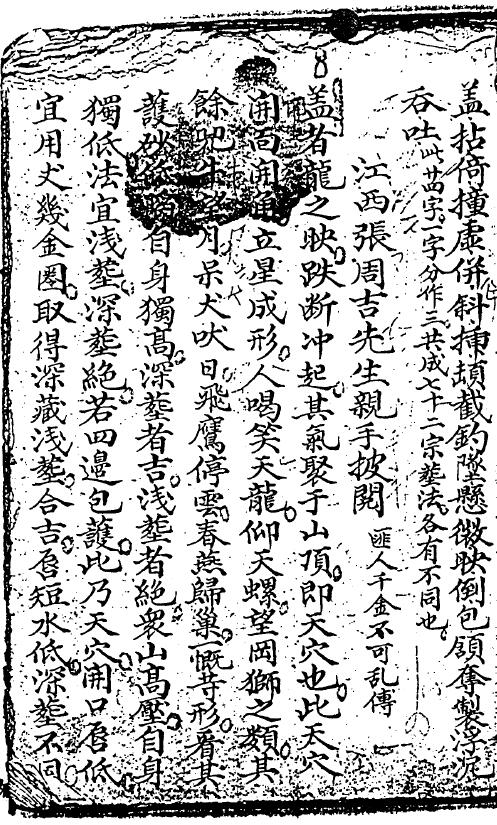 盖拈倚撞虛併斜插頭截釣墜懸微映倒包領奪製浮沉
吞吐此廿四字一字分作三共成七十二宗𦵏法各有不同也
江西張周吉先生親手披閱 匪人千金不可乱傳
盖者龍之映跌断冲起其氣聚于山頂即天穴也此天穴
開 開 立星成形人喝笑天龍仰天螺望岡獅之類其
餘 月呆犬吠日飛鷹停雲春燕歸巢一概等形看其
護砂 自身獨髙深𦵏者吉浅𦵏者絶衆山髙壓自身
獨低法宜浅𦵏深𦵏絶若四邊包護此乃天穴開口唇低
宜用丈幾金圏取得深藏浅𦵏合吉唇短水低深𦵏不同